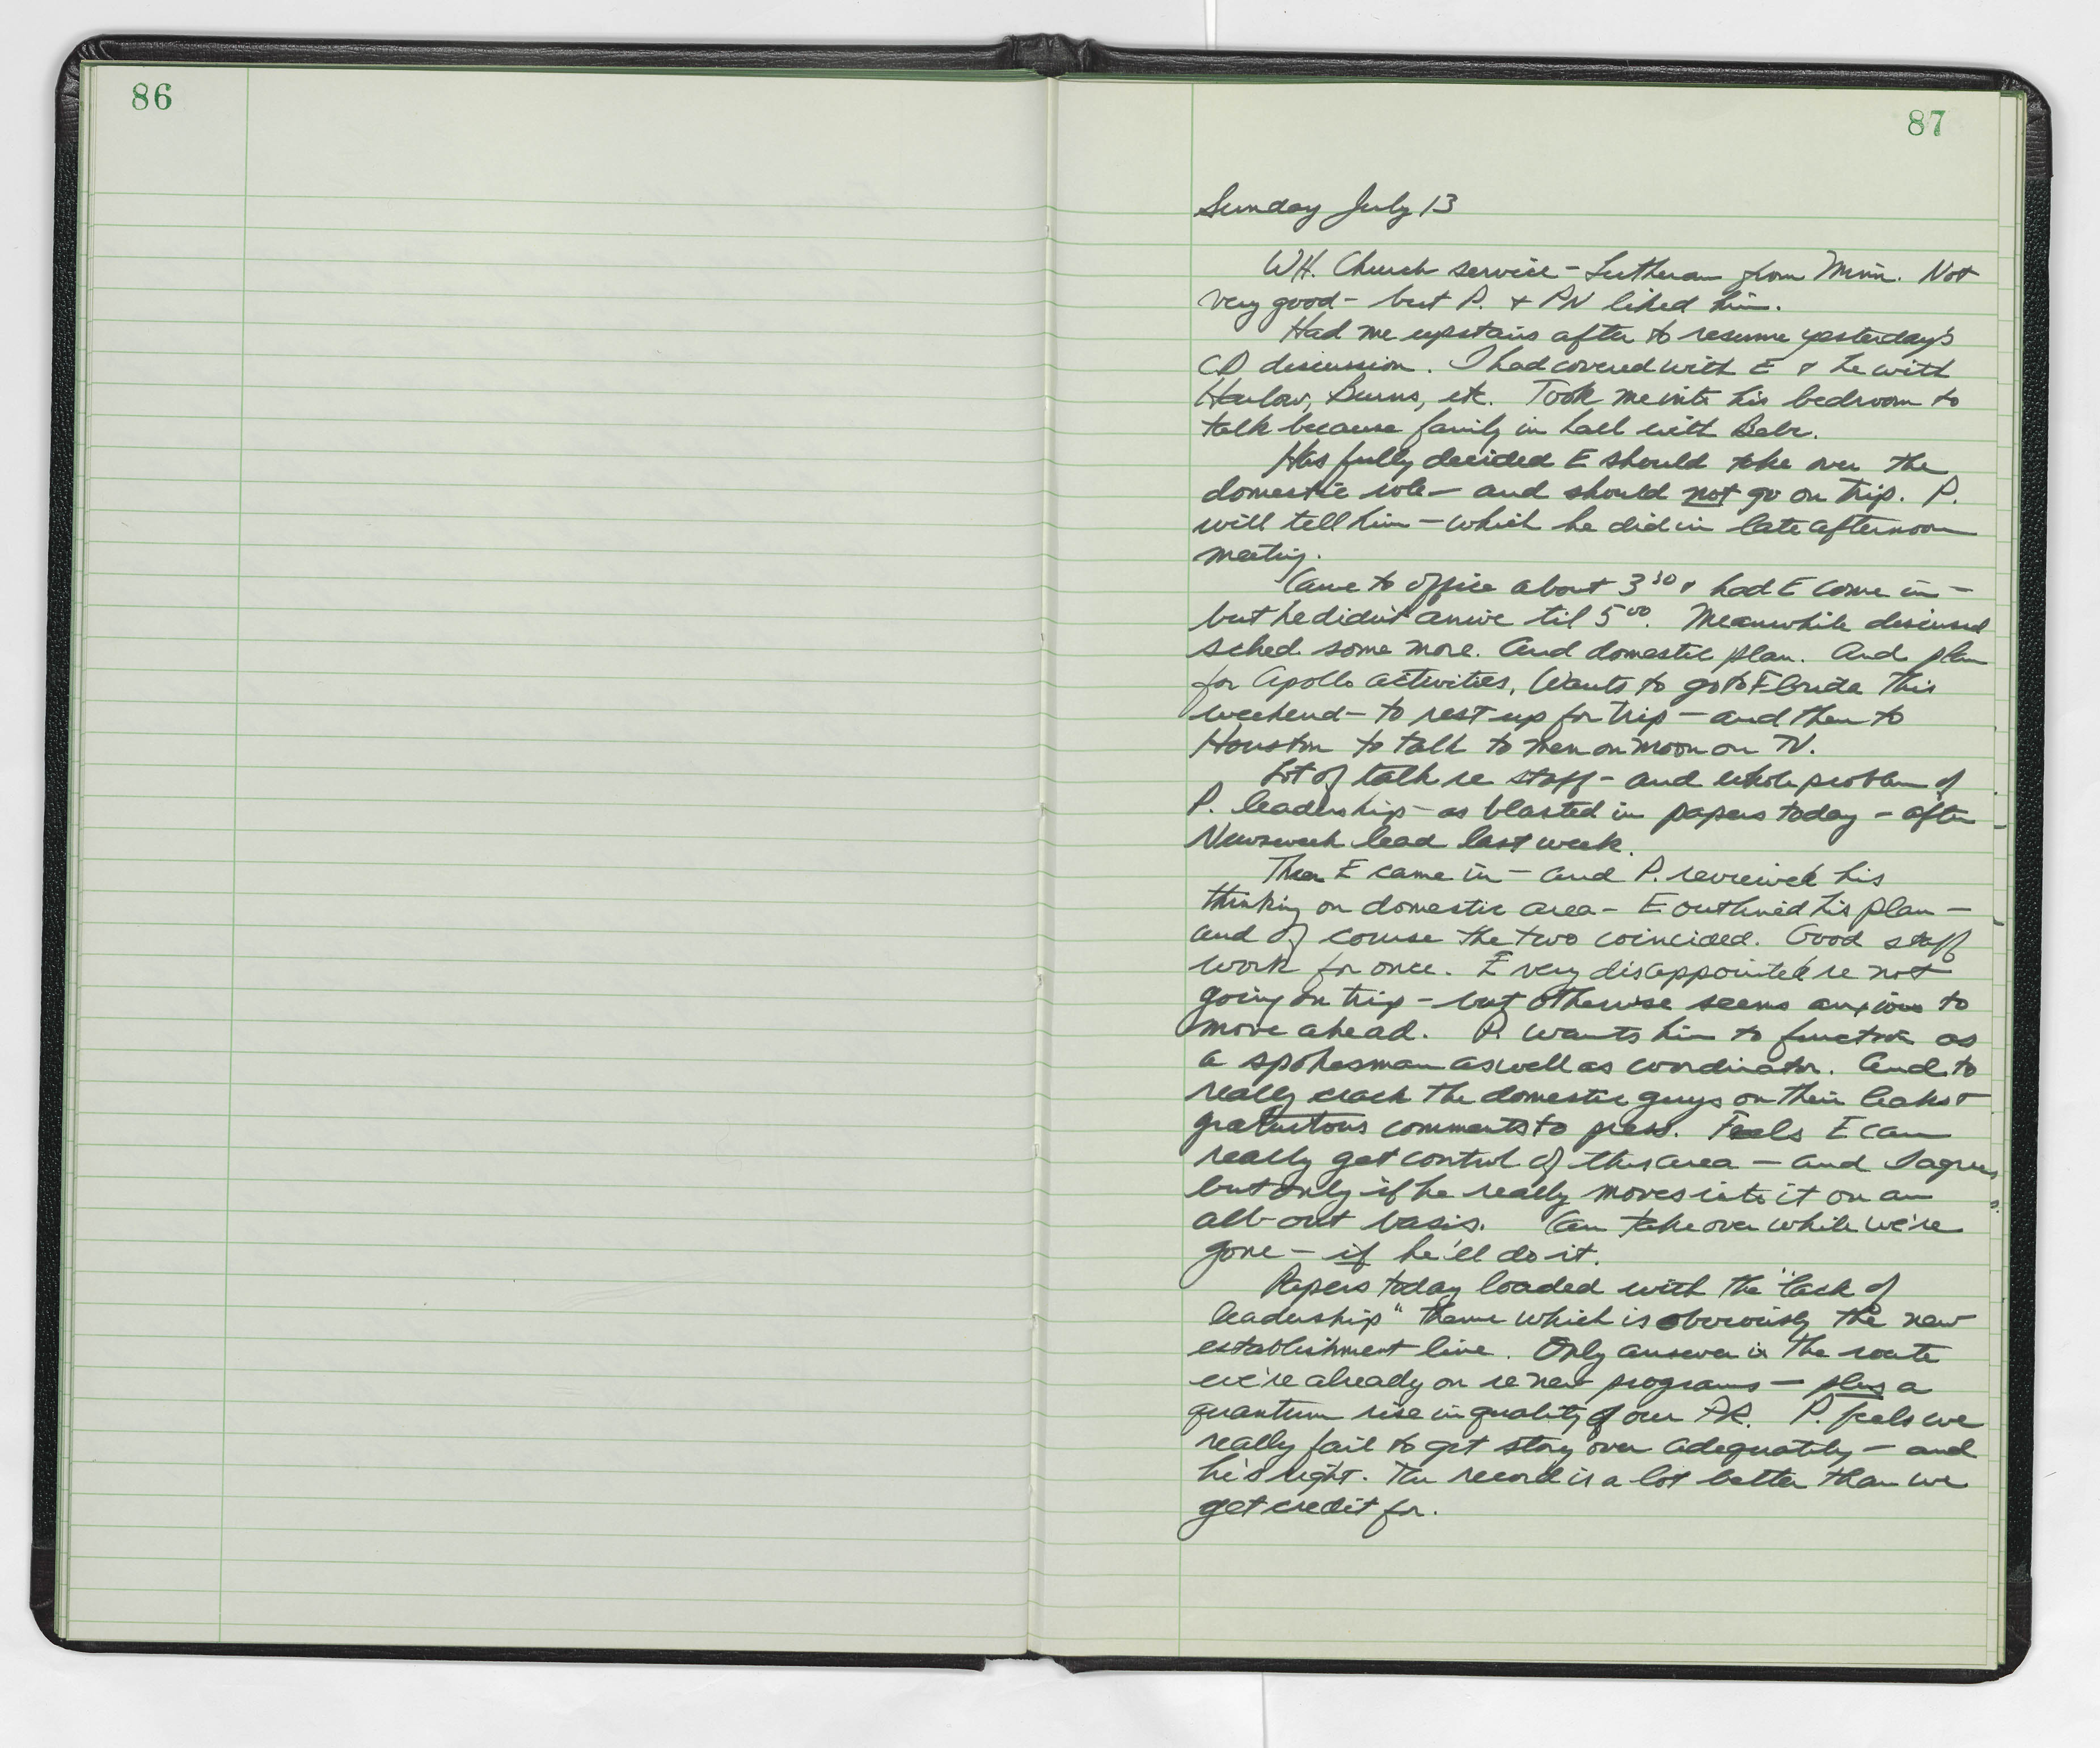 86
87
Sunday July 13
WH. Church service - Lutheran from Minn. Not
very good - but P. + PN liked him.
Had me upstairs after to resume yesterday's
CD discussion. I had covered with E + he with
Harlow, Burns, etc. Took me into his bedroom to
talk because family in hall with Bebe.
Has fully decided E should take over the
domestic role - and should not go on trip. P.
will tell him - which he did in late afternoon
meeting.
Came to office about 3 30 + had E come in -
but he didn't arrive til 5 00. Meanwhile discussed
sched. some more. And domestic plan. And plan
for Apollo activities. Wants to go to Florida this
weekend - to rest up for trip - and then to
Houston to talk to men on moon on TV.
Lot of talk re staff - and whole problem of
P. leadership - as blasted in papers today - after
Newsweek lead last week.
Then E came in - and P. reviewed his
thinking on domestic area - E outlined his plan -
and of course the two coincided. Good staff
work for once. E very disappointed re not
going on trip - but otherwise seems anxious to
move ahead. P. wants him to function as
a spokesman as well as coordinator. And to
really crack the domestic guys on their leaks +
gratuitous comments to press. Feels E can
really get control of this area - and I agree,
but only if he really moves into it on an
all-out basis. Can take over while we're
gone - if he'll do it.
Papers today loaded with the "lack of
leadership" theme which is obviously the new
establishment line. Only answer is the route
we're already on re new programs - plus a
quantum rise in quality of our PR. P. feels we
really fail to get story over adequately - and
he's right. The record is a lot better than we
get credit for.